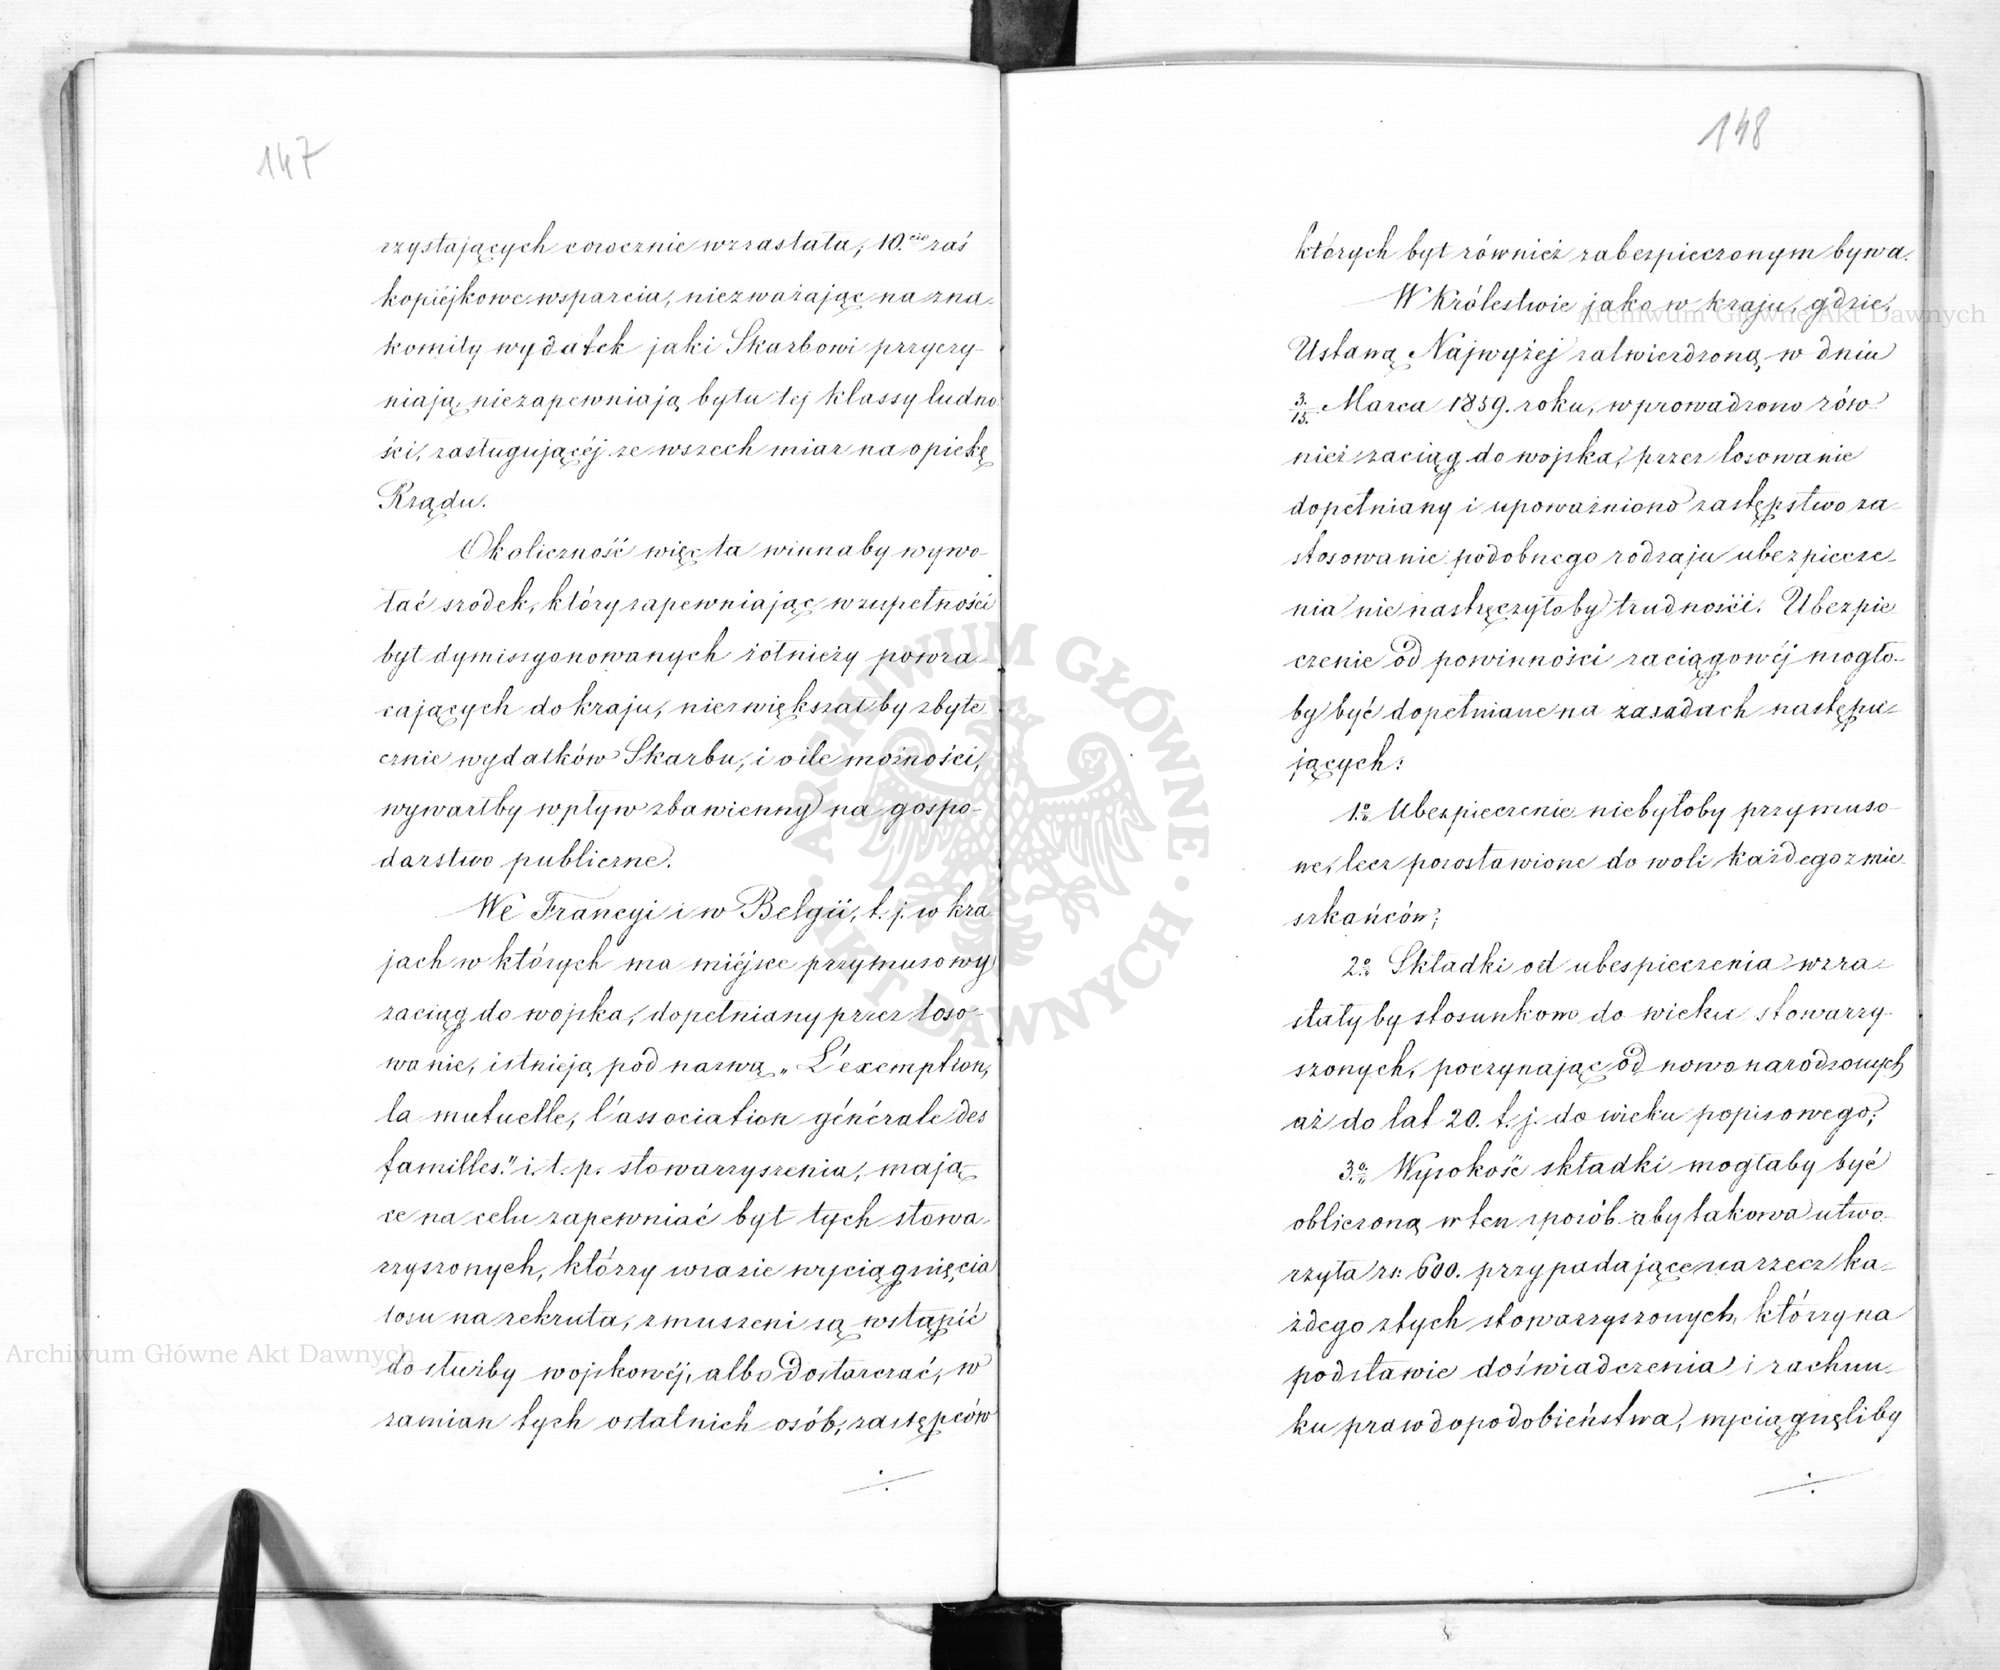 147
rzystających corocznie wzrastała, 10.cio zaś
kopiéjkowe wsparcia, niezważając na zna-
komity wydatek jaki Skarbowi przyczy-
niają, niezapewniają bytu tej klassy ludno-
ści, zasługującéj ze wszech miar na opiekę
Rządu.
Okoliczność więc ta winna by wywo-
łać srodek, który zapewniając w zupełności
byt dymissyonowanych żołnieży powra-
cających do kraju, niezwiększał by zbyte-
cznie wydatków Skarbu, i o ile możności,
wywarłby wpływ zbawienny na gospo-
darstwo publiczne.
We Francyi i w Belgii, t. j. w kra-
jach w których ma miéjsce przymusowy
zaciąg do wojska, dopełniany przez loso-
wanie, istnieją pod nazwą „L'exemption,
la mutuelle, l'association générale des
familles." i. t. p. stowarzyszenia, mają-
ce na celu zapewniać byt tych stowa-
rzyszonych, którzy w razie wyciągnięcia
losu na rekruta, zmuszeni są wstąpić
do służby wojskowéj, albo dostarczać, w
zamian tych ostatnich osób, zastępców
148
których byt również zabezpieczonym bywa.
W Królestwie jako w kraju, gdzie,
Ustawą Najwyżej zatwierdzoną w dniu
3./15. Marca 1859. roku, wprowadzono rów-
nież zaciąg do wojska, przez losowanie
dopełniany i upoważniono zastępstwo za-
stosowanie podobnego rodzaju ubezpiecze-
nia nie nastręczyłoby trudności. Ubezpie
czenie od powinności zaciągowéj mogło-
by być dopełniane na zasadach następu-
jących:
1.o Ubezpieczenie niebyłoby przymuso-
ne, lecz pozostawione do woli każdego z mie-
szkańców;
2.o Składki od ubespieczenia wzra-
stały by stosunkowo do wieku stowarzy-
szonych, poczynając od nowonarodzonych
aż do lat 20. t. j. do wieku popisowego;
3.o Wysokość składki mogłaby być
obliczoną w ten sposób aby takowa utwo-
rzyła rs: 600. przypadające na rzecz ka-
żdego z tych stowarzyszonych, którzy na
podstawie doświadczenia i rachun-
ku prawdopodobieństwa, wyciągnęliby
Archiwum Główne Akt Dawnych
Archiwum Główne Akt Dawnych
ARCHIWUM GŁÓWNE AKT DAWNYCH